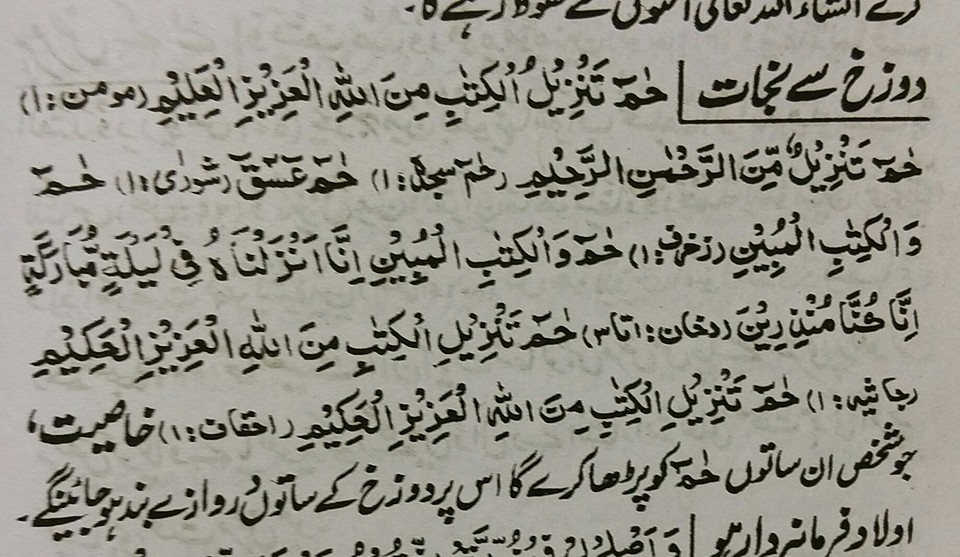 کرے انشاء اللہ تعالٰی
دوزخ سے نجات حٰمٓ تَنْزِیْلُ الْکِتٰبِ مِنَ اللّٰہِ الْعَزِیْزِ الْعَلِیْمِ (مومن:۱)
حٰمٓ تَنْزِیْلٌ مِّنَ الرَّحْمٰنِ الرَّحِیْمِ (حٰم سجدہ:۱) حٰمٓ عٓسٓقٓ (شورٰی:۱) حٰمٓ
وَالْکِتٰبِ الْمُبِیْنِ (زخرف:۱) حٰمٓ وَالْکِتٰبِ الْمُبِیْنِ اِنَّا اَنْزَلْنَاہُ فِیْ لَیْلَۃٍ مُّبَارَکَۃٍ
اِنَّا کُنَّا مُنْذِرِیْنَ (دخان:۱تا۳) حٰمٓ تَنْزِیْلِ الْکِتٰبِ مِنَ اللّٰہِ الْعَزِیْزِ الْحَکِیْمِ
(جاثیہ:۱) حٰمٓ تَنْزِیْلِ الْکِتٰبِ مِنَ اللّٰہِ الْعَزِیْزِ الْحَکِیْمِ (احقاف:۱) خاصیت،
جو شخص ان ساتوں حٰمٓ کو پڑھا کرے گا اس پر دوزخ کے ساتوں دروازے بند ہو جائینگے۔
اولاد فرمانبردار ہو وَاَصْلِحْ